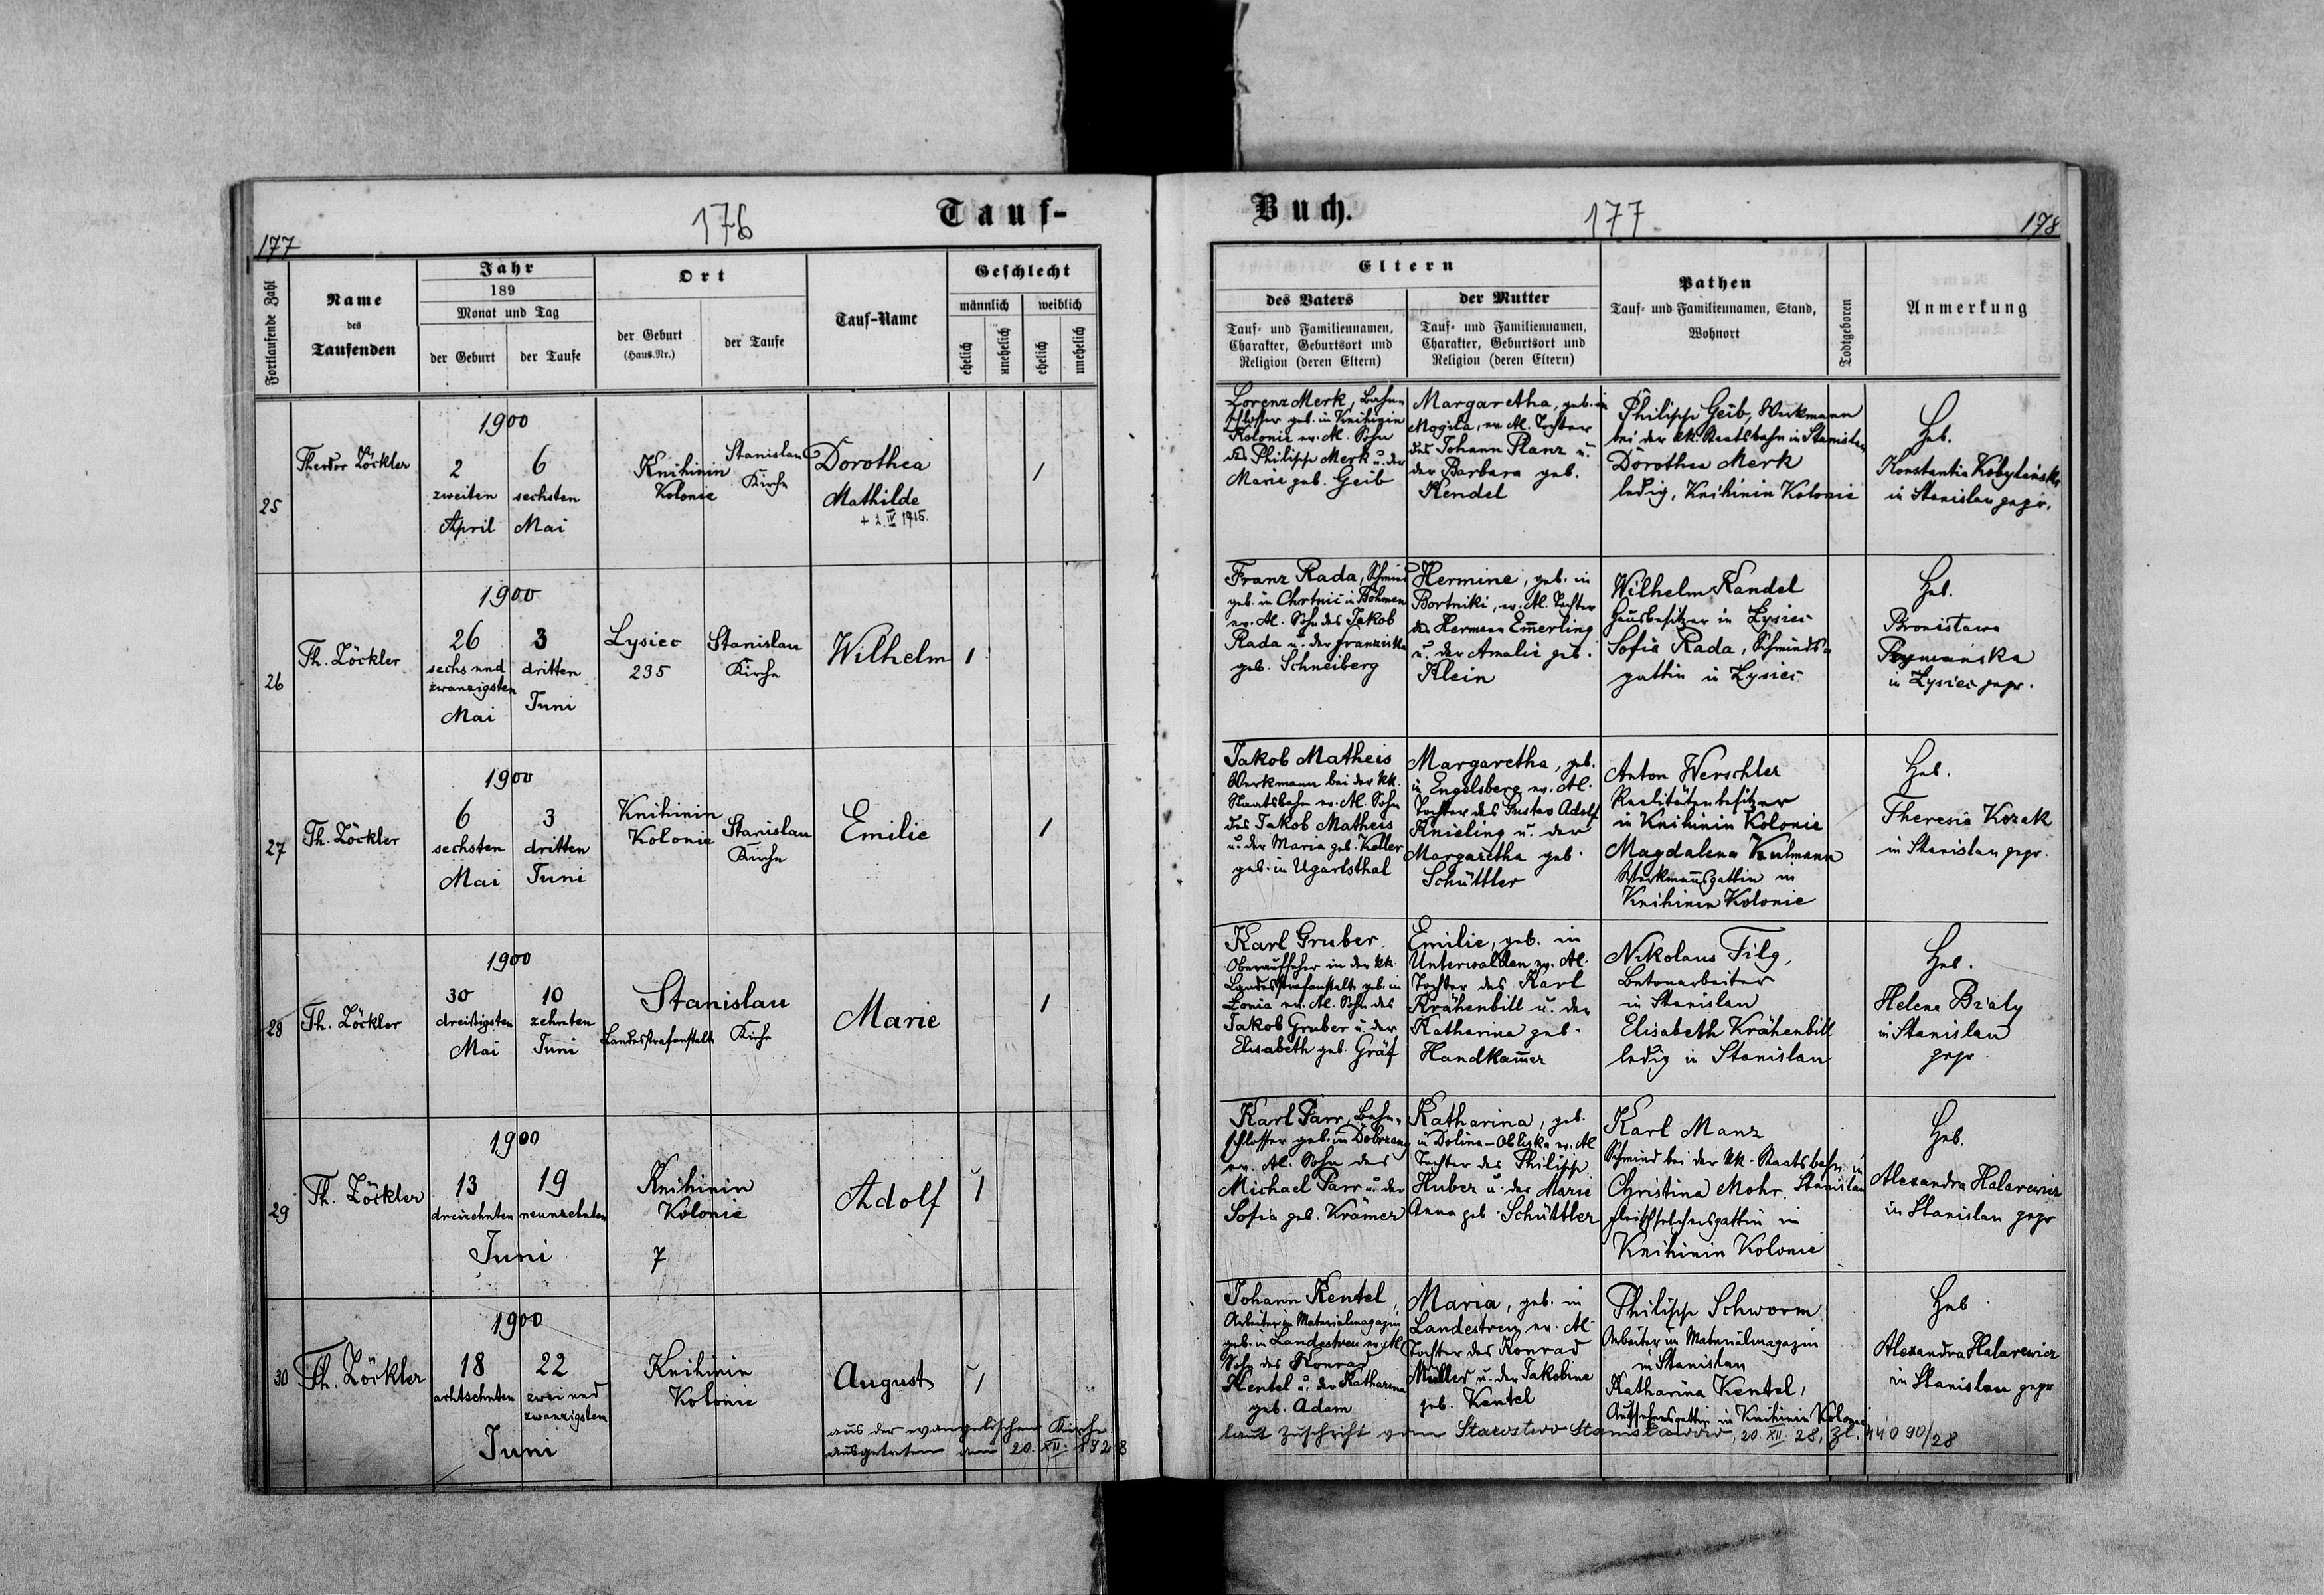 177
176
Tauf-
Fortlaufende Zahl
Name
des
Taufenden
Jahr
189
Monat und Tag
der Geburt
der Taufe
Ort
der Geburt
(Haus.Nr.)
der Taufe
Tauf-Name
Geschlecht
männlich
weiblich
ehelich
unehelich
ehelich
unehelich
25
Theodor Zöckler
1900
2
zweiten
April
6
sechsten
Mai
Knihinin
Kolonie
Stanislau
Kirche
Dorothea
Mathilde
+ 2. IV 1915.
1
26
Th. Zöckler
1900
26
sechs und
zwanzigsten
Mai
3
dritten
Juni
Lysiec
235
Stanislau
Kirche
Wilhelm
1
27
Th. Zöckler
1900
6
sechsten
Mai
3
dritten
Juni
Knihinin
Kolonie
Stanislau
Kirche
Emilie
1
28
Th. Zöckler
1900
30
dreißigsten
Mai
10
zehnten
Juni
Stanislau
Landesstrafanstalt
Kirche
Marie
1
29
Th. Zöckler
1900
13
dreizehnten
19
neunzehnten
Juni
Knihinin
Kolonie
7
Adolf
1
30
Th. Zöckler
1900
18
achtzehnten
22
zwei und
zwanzigsten
Juni
Knihinin
Kolonie
August
1
aus der evangelischen Kirche
ausgetreten am 20. XII. 1928
Buch.
177
178
Eltern
des Vaters
Tauf- und Familiennamen,
Charakter, Geburtsort und
Religion (deren Eltern)
der Mutter
Tauf- und Familiennamen,
Charakter, Geburtsort und
Religion (deren Eltern)
Pathen
Tauf- und Familiennamen, Stand,
Wohnort
Todtgeboren
Anmerkung
Lorenz Merk, Bahn-
schlosser geb. in Knihinin
Kolonie ev. Al. Sohn
des Philipp Merk u. der
Marie geb. Geib
Margaretha, geb. in
Mogila, ev. Al. Tochter
des Johann Planz u.
der Barbara geb.
Kendel
Philipp Geib, Werkmann
bei der kk. Staatsbahn in Stanislau
Dorothea Merk
ledig, Knihinin Kolonie
Heb.
Konstantia Kobylańska
in Stanislau gepr.
Franz Rada, Schmied
geb. in Chotnic in Böhmen
ev. Al. Sohn des Jakob
Rada u. der Franziska
geb. Schneiberg
Hermine, geb. in
Bortniki, ev. Al. Tochter
des Hermann Emmerling
u. der Amalie geb.
Klein
Wilhelm Kandel
Hausbesitzer in Lysiec
Sofia Rada, Schmieds-
gattin in Lysiec
Heb.
Bronisława
in Lysiec gepr.
Jakob Matheis
Werkmann bei der kk.
Staatsbahn ev. Al. Sohn
des Jakob Matheis
u. der Maria geb. Keller
geb. in Ugartsthal
Margaretha, geb.
in Engelsberg ev. Al.
Tochter des Gustav Adolf
Knieling u. der
Margaretha geb.
Schüttler
Anton Werschler
Realitätenbesitzer
in Knihinin Kolonie
Magdalena Kulmann
Werkmannsgattin in
Knihinin Kolonie
Heb.
Theresia Kozak
in Stanislau gepr.
Karl Gruber
Oberaufseher in der kk.
Landesstrafanstalt geb. in
ev. Al. Sohn des
Jakob Gruber u. der
Elisabeth geb. Gräf
Emilie, geb. in
Unterwalden ev. Al.
Tochter des Karl
Krähenbill u. der
Katharina geb.
Handkamer
Nikolaus Filg,
Betonarbeiter
in Stanislau
Elisabeth Krähenbill
ledig in Stanislau
Heb.
Helena Biały
in Stanislau
gepr
Karl Parr, Bahn-
schlosser geb. in Dobrzany
ev. Al. Sohn des
Michael Parr u. der
Sofia geb. Krämer
Katharina, geb.
in Dolina-Obliska ev. Al
Tochter des Philipp
Huber u. der Marie
Anna geb. Schüttler
Karl Manz
Schmied bei der kk-Staatsbahn in
Stanislau
Christina Mohr,
Fleischselchersgattin in
Knihinin Kolonie
Heb.
Alexandra Halarewicz
in Stanislau gepr
Johann Kentel,
Arbeiter im Materialmagazin
geb. in Landestreu ev. Al.
Sohn des Konrad
Kentel u. der Katharina
geb. Adam
Maria, geb. in
Landestreu ev. Al.
Tochter des Konrad
Müller u. der Jakobine
geb. Kentel
Philipp Schworm
Arbeiter im Materialmagazin
in Stanislau
Katharina Kentel,
Aufsehersgattin in Knihinin Kolonie
Heb.
Alexandra Halarewicz
in Stanislau gepr
laut Zuschrift vom Starostwo Stanisławów, 20. XII. 28, Zl. 44090/28